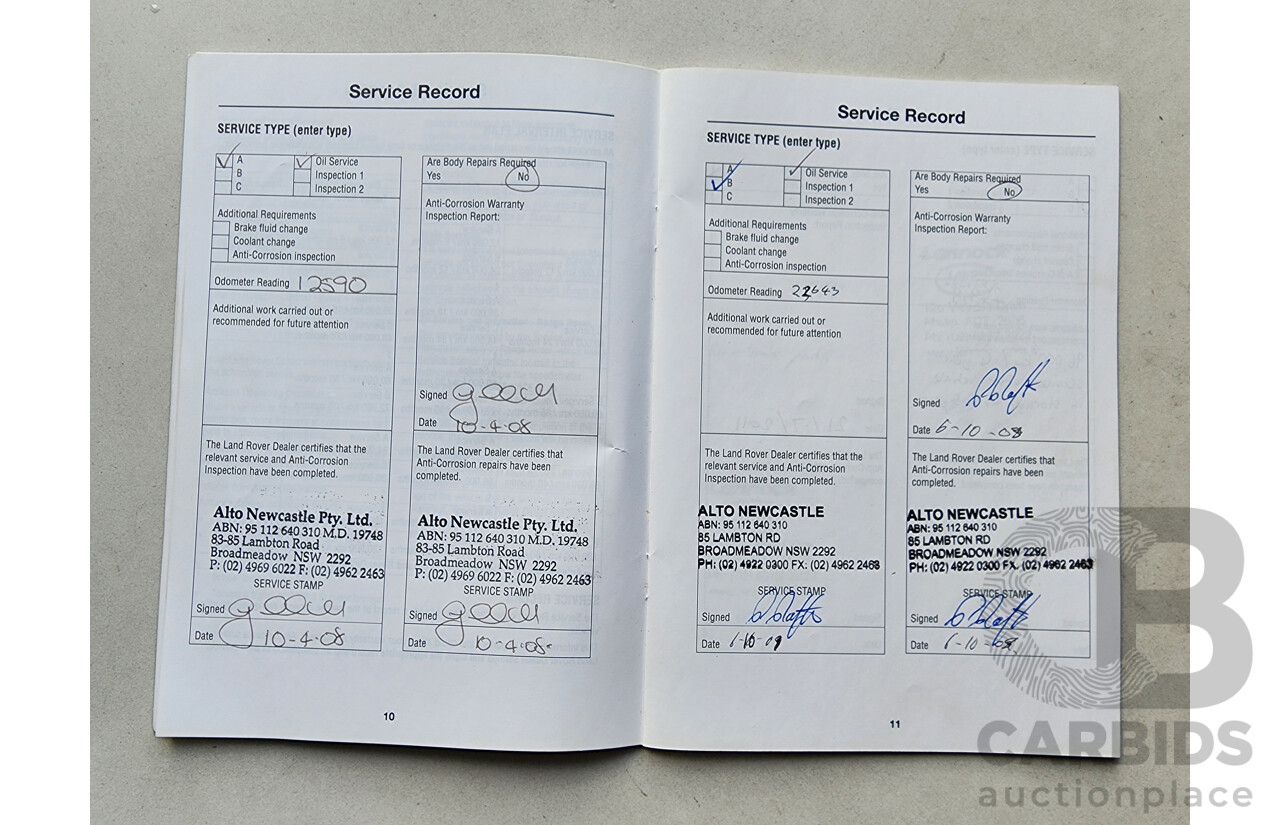 Service Record
SERVICE TYPE (enter type)
A
B
C
Oil Service
Inspection 1
Inspection 2
Additional Requirements
Brake fluid change
Coolant change
Anti-Corrosion inspection
Odometer Reading 12590
Additional work carried out or
recommended for future attention
The Land Rover Dealer certifies that the
relevant service and Anti-Corrosion
Inspection have been completed.
Alto Newcastle Pty. Ltd.
ABN: 95 112 640 310 M.D. 19748
83-85 Lambton Road
Broadmeadow NSW 2292
P: (02) 4969 6022 F: (02) 4962 2463
SERVICE STAMP
Signed
Date 10-4-08
Are Body Repairs Required
Yes No
Anti-Corrosion Warranty
Inspection Report:
Signed
Date 10-4-08
The Land Rover Dealer certifies that
Anti-Corrosion repairs have been
completed.
Alto Newcastle Pty. Ltd.
ABN: 95 112 640 310 M.D. 19748
83-85 Lambton Road
Broadmeadow NSW 2292
P: (02) 4969 6022 F: (02) 4962 2463
SERVICE STAMP
Signed
Date 10-4-08
10
Service Record
SERVICE TYPE (enter type)
A
B
C
Oil Service
Inspection 1
Inspection 2
Additional Requirements
Brake fluid change
Coolant change
Anti-Corrosion inspection
Odometer Reading 22643
Additional work carried out or
recommended for future attention
The Land Rover Dealer certifies that the
relevant service and Anti-Corrosion
Inspection have been completed.
ALTO NEWCASTLE
ABN: 95 112 640 310
85 LAMBTON RD
BROADMEADOW NSW 2292
PH: (02) 4922 0300 FX: (02) 4962 2463
SERVICE STAMP
Signed
Date
Are Body Repairs Required
Yes No
Anti-Corrosion Warranty
Inspection Report:
Signed
Date 6-10-08
The Land Rover Dealer certifies that
Anti-Corrosion repairs have been
completed.
ALTO NEWCASTLE
ABN: 95 112 640 310
85 LAMBTON RD
BROADMEADOW NSW 2292
PH: (02) 4922 0300 FX. (02) 4962 2463
SERVICE STAMP
Signed
Date 6-10-08
11
CARBIDS
auctionplace